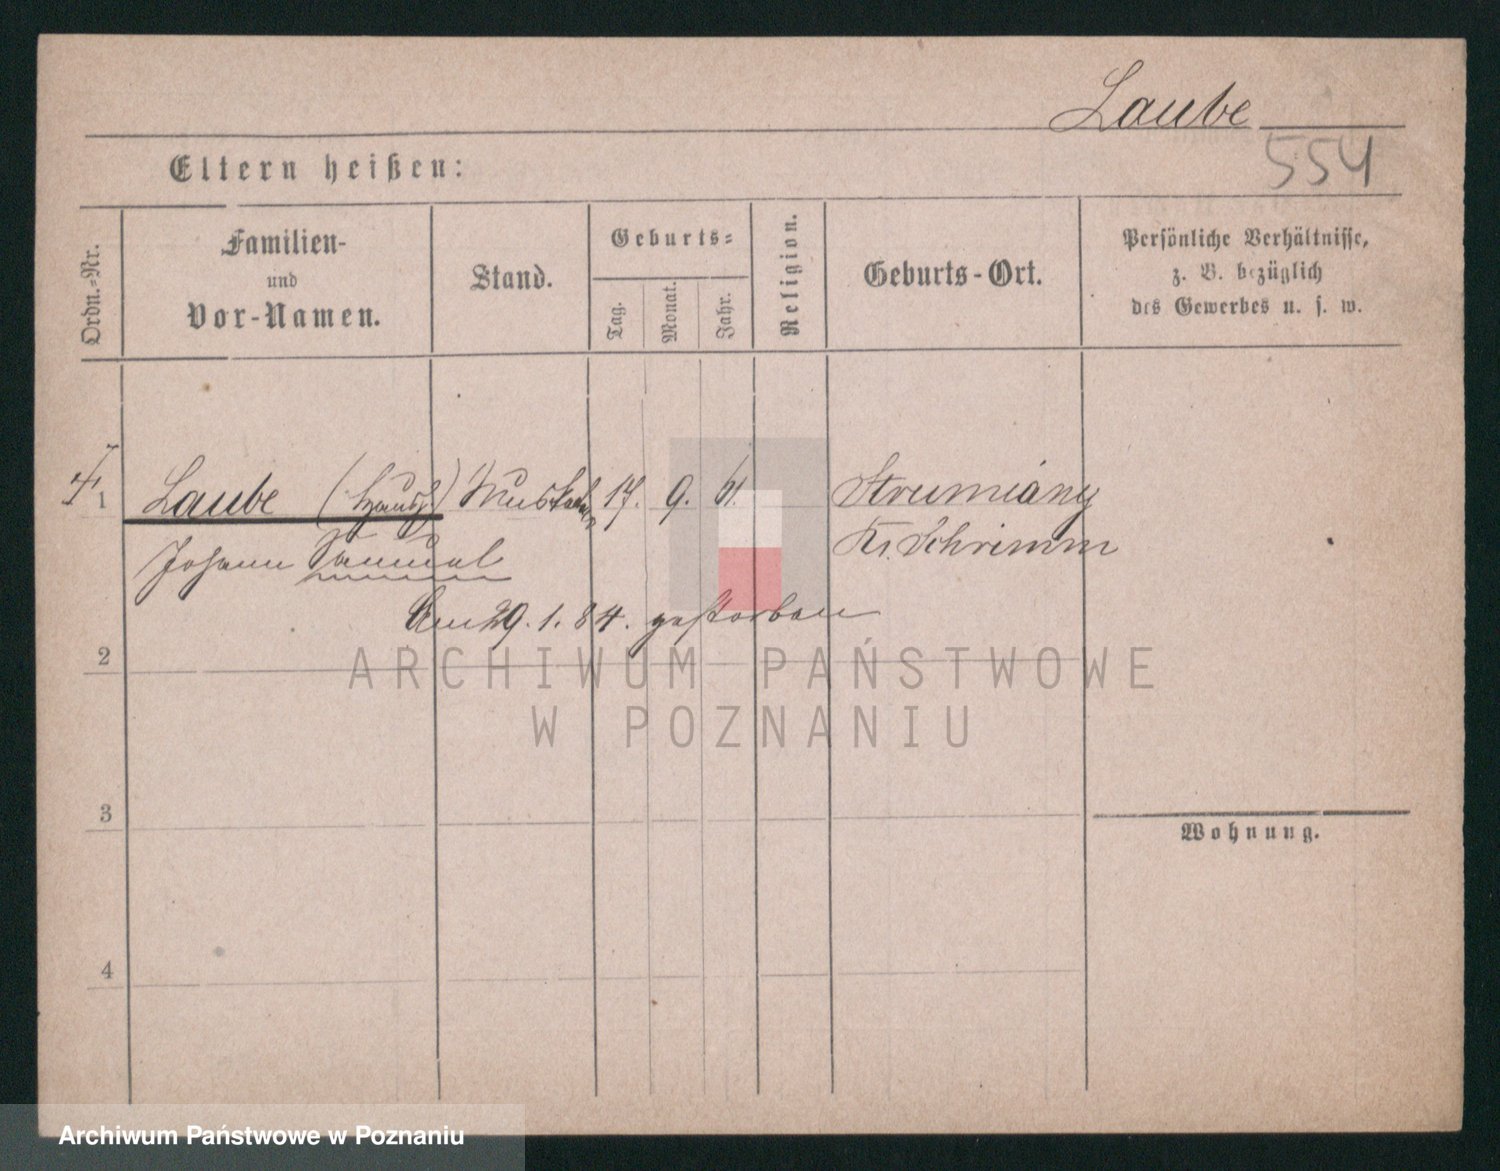 Laube
554
Eltern heißen:
Ordn.-Nr.
Familien-
und
Vor-Namen.
Stand.
Geburts-
Tag.
Monat.
Jahr.
Religion.
Geburts-Ort.
Persönliche Verhältnisse,
z. B. bezüglich
des Gewerbes u. s. w.
1 Laube 17. 9. Strumiány
Johann Samuel Kr. Schrimm
Am 29. 1. 84. gestorben
2
ARCHIWUM PAŃSTWOWE
W POZNANIU
3
Wohnung.
4
Archiwum Państwowe w Poznaniu